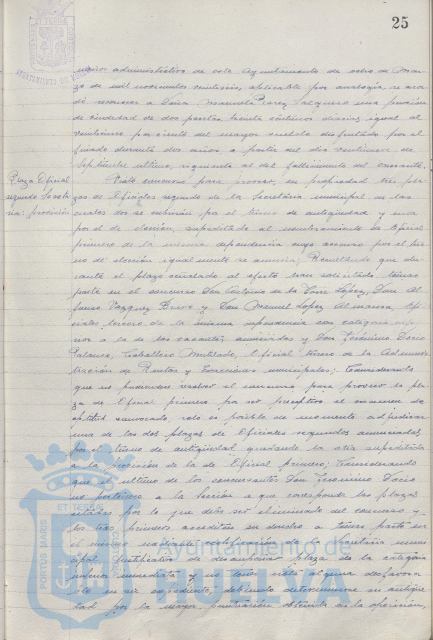 25
cionarios administrativos de este Ayuntamiento de ocho de Mar-
zo de mil novecientos veintiseis, aplicable por analogía, se acor-
dó reconocer a Doña Manuela Perez Salguero una pensión
de viudedad de dos pesetas treinta céntimos diarios igual al
veinticinco por ciento del mayor sueldo disfrutado por el
finado durante dos años a partir del dia veintinueve de
Septiembre ultimo, siguiente al del fallecimiento del causante.
Plaza Oficial
segundo Secreta
ria: provisión
Visto concurso para proveer, en propiedad tres pla-
zas de Oficiales segundo de la Secretaria municipal de las
cuales dos se cubrirán por el turno de antigüedad y una
por el de elección, supeditado al nombramiento de Oficial
primero de la misma dependencia cuyo ascenso por el tur-
no de elección igualmente se anuncia; Resultando que du-
rante el plazo señalado al efecto han solicitado tomar
parte en el concurso Don Antonio de la Torre Lopez, Don Al-
fonso Vazquez Bravo y Don Manuel Lopez Almansa, Ofi-
ciales tercero de la misma dependencia con categoria infe-
rior a la de las vacantes anunciadas y Don Jerónimo Docio
Palanco, Caballero Mutilado, Oficial tercero de la Adminis-
tración de Rentas y Exacciones municipales; Considerando
que no pudiendose resolver el concurso para proveer la pla-
za de Oficial primero por ser preceptivo el examen de
aptitud convocado, solo es posible de momento adjudicar
una de las dos plazas de Oficiales segundos anunciadas
por el turno de antigüedad, quedando la otra supeditada
a la provisión de la de Oficial primero; Considerando
que el ultimo de los concursantes Don Jerónimo Docio
no pertenece a la Sección a que corresponde las plazas
citadas por lo que debe ser eliminado del concurso y
los tres primeros acreditan su derecho a tomar parte en
el mismo mediante certificación de la Secretaria munici-
pal justificativa de desempeñar plaza de la categoria
inferior inmediata y no tener nota alguna desfavora-
ble en su expediente, debiendo determinarse su antigüe-
dad por la mayor puntuación obtenida en la oposición,
PORTUS MARIS
ET TERRAE
Ayuntamiento de
HUELVA